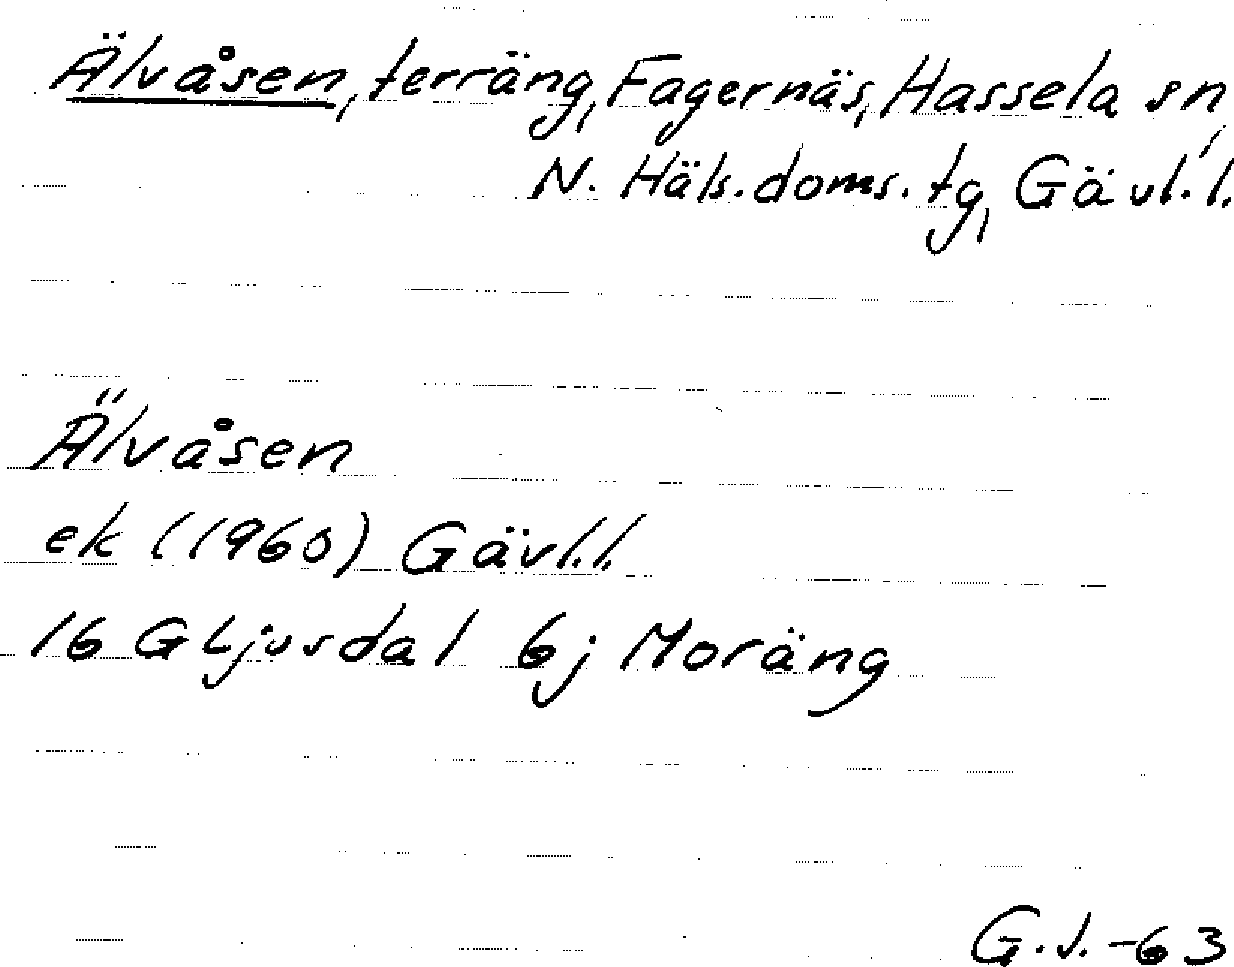 Älvåsen, terräng, Fagernäs, Hassela sn,
N. Häls. doms. tg, Gävl. l.
Älvåsen
ek (1960) Gävl. l.
16 G Ljusdal 6j Moräng
G. J. -63